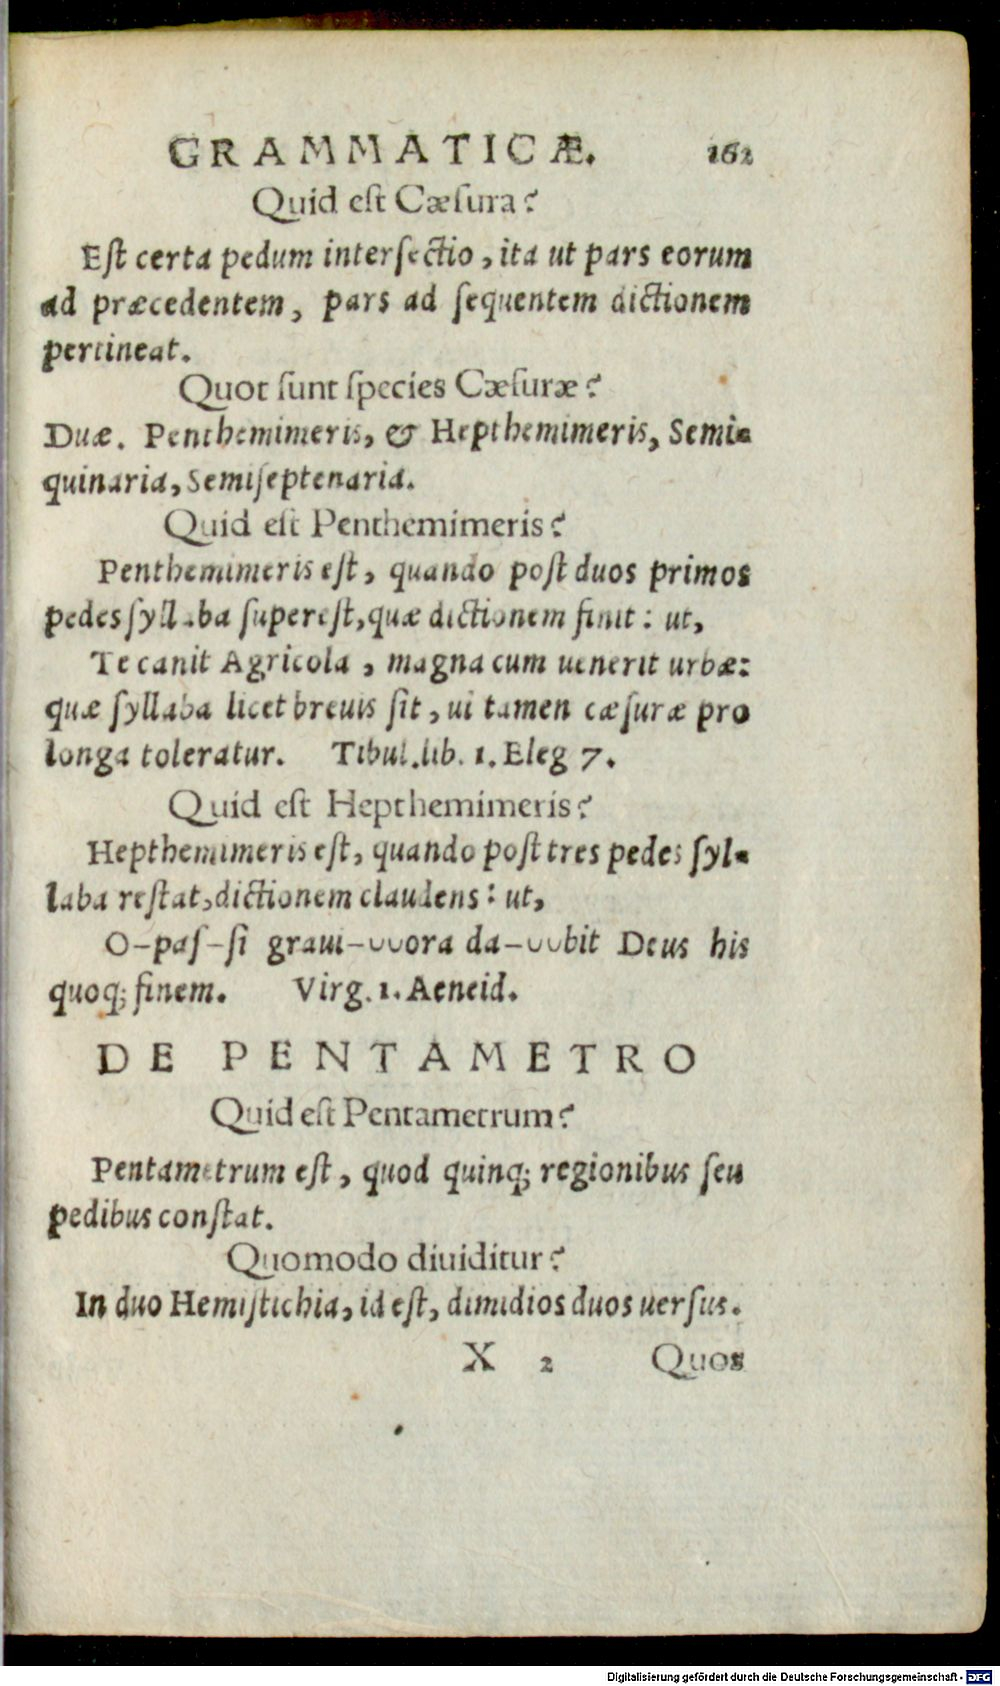 GRAMMATICÆ. 162
Quid eſt Cæſura?
Eſt certa pedum interſectio, ita ut pars eorum
ad præcedentem, pars ad ſequentem dictionem
pertineat.
Quot ſunt ſpecies Cæſuræ?
Duæ. Penthemimeris, & Hepthemimeris, Semi-
quinaria, Semiſeptenaria.
Quid eſt Penthemimeris?
Penthemimeris eſt, quando poſt duos primos
pedes ſyllaba ſupereſt, quæ dictionem finit: ut,
Te canit Agricola, magna cum uenerit urbæ:
quæ ſyllaba licet breuis ſit, ui tamen cæſuræ pro
longa toleratur. Tibul. lib. 1. Eleg 7.
Quid eſt Hepthemimeris?
Hepthemimeris eſt, quando poſt tres pedes ſyl-
laba reſtat, dictionem claudens: ut,
O–paſ–ſi graui–◡◡ora da–◡◡bit Deus his
quoq; finem. Virg. 1. Aeneid.
DE PENTAMETRO
Quid eſt Pentametrum?
Pentametrum eſt, quod quinq; regionibus ſeu
pedibus conſtat.
Quomodo diuiditur?
In duo Hemiſtichia, id eſt, dimidios duos uerſus.
X 2 Quos
Digitalisierung gefördert durch die Deutsche Forschungsgemeinschaft - DFG